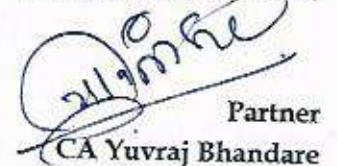 Partner
CA Yuvraj Bhandare